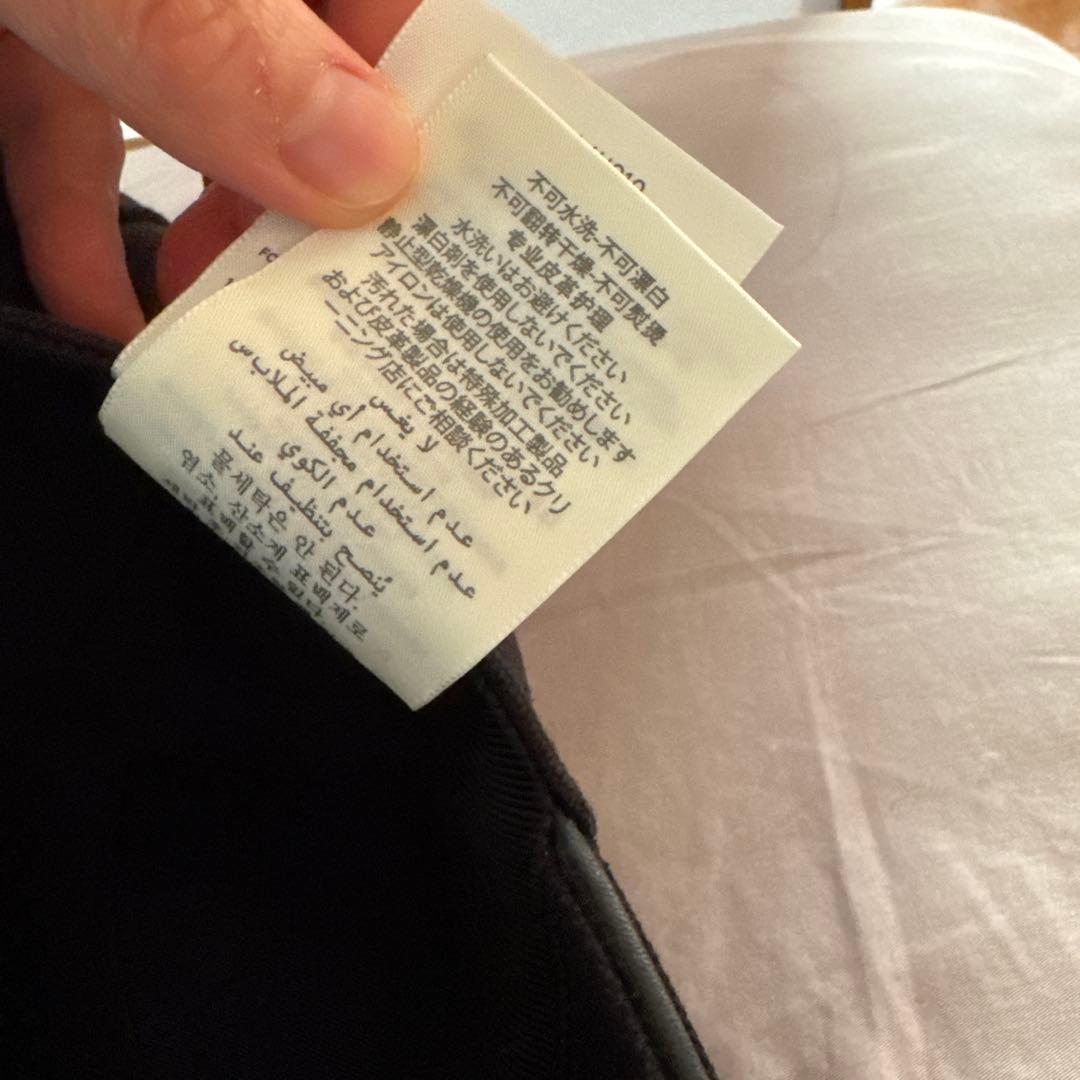 不可水洗-不可漂白
不可翻转干燥-不可熨烫
专业皮革护理
水洗いはお避けください
漂白剤を使用しないでください
静止型乾燥機の使用をお勧めします
アイロンは使用しないでください
汚れた場合は特殊加工製品
および皮革製品の経験のあるクリ
ーニング店にご相談ください
لا يغسل
عدم استخدام أي مبيض
عدم استخدام مجففة الملابس
عدم الكوي
يُنصح بتنظيف عند
물세탁은 안 된다.
염소, 산소계 표백제로
FC